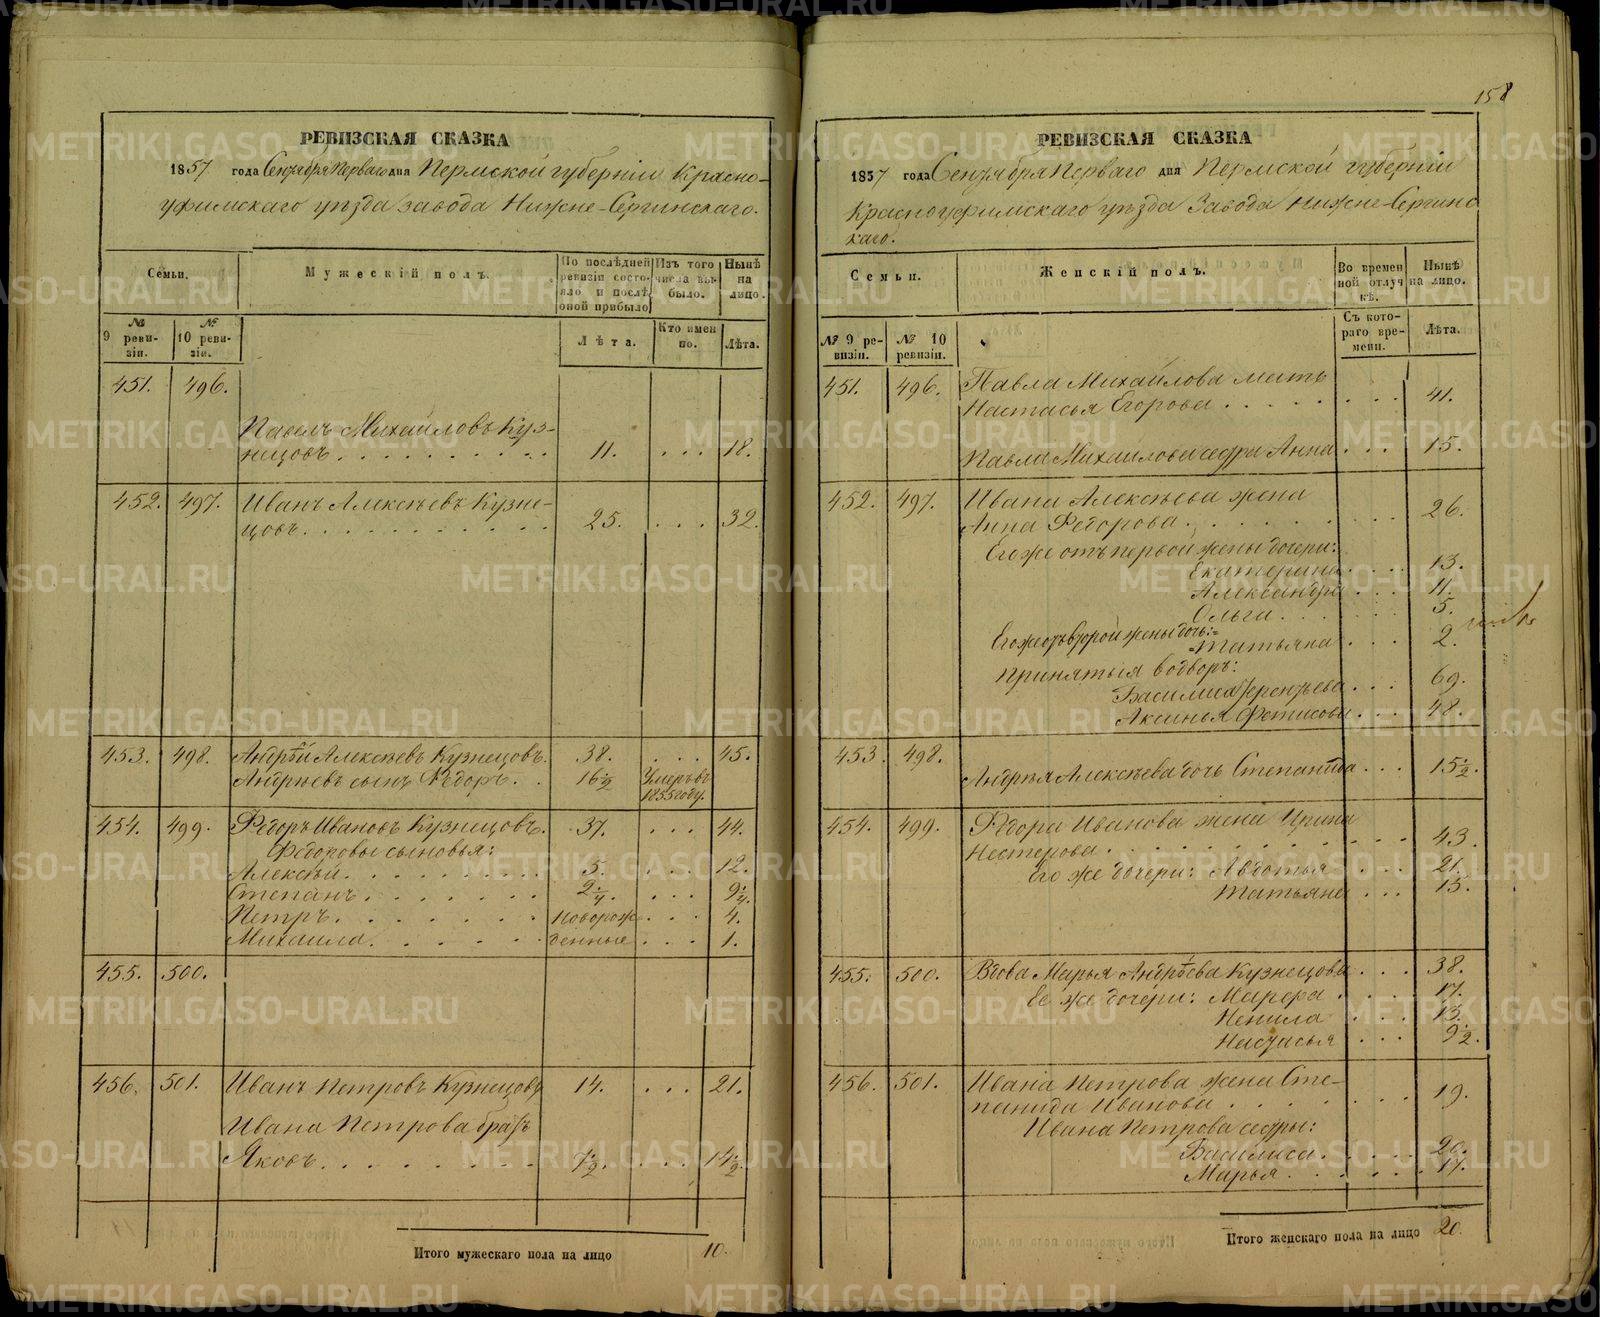 РЕВИЗСКАЯ СКАЗКА
1857 года Сентября Перваго дня Пермской губерніи Красно-
уфимскаго уѣзда завода Нижне-Сергинскаго.
Семьи.
Мужескій полъ.
По послѣдней ревизіи состояло и послѣ оной прибыло
Изъ того числа выбыло.
Нынѣ на лицо.
№ 9 ревизіи.
№ 10 ревизіи.
Лѣта.
Кто именно.
Лѣта.
451. 496.
Павелъ Михайловъ Куз-
нецовъ. 11. 18.
452. 497. Иванъ Алексѣевъ Кузне-
цовъ. 25. 32.
453. 498. Андрей Алексѣевъ Кузнецовъ. 38. 45.
Андреевъ сынъ Ѳедоръ. 16½ Умеръ въ
1855 году.
454. 499. Ѳедоръ Ивановъ Кузнецовъ. 37. 44.
Ѳедоровы сыновья:
Алексѣй 5. 12.
Степанъ 2¼. 9¼.
Петръ. новорож- 4.
Михаила. денные 1.
455. 500.
456. 501. Иванъ Петровъ Кузнецовъ 14. 21.
Ивана Петрова братъ
Яковъ. 7½. 14½
Итого мужескаго пола на лицо 10.
158
РЕВИЗСКАЯ СКАЗКА
1857 года Сентября Перваго дня Пермской губерніи
Красноуфимскаго уѣзда Завода Нижне-Сергинс
каго.
Семьи.
Женскій полъ.
Во временной отлучкѣ.
Нынѣ на лицо.
№ 9 ревизіи.
№ 10 ревизіи.
Съ котораго времени.
Лѣта.
451. 496. Павла Михайлова мать
Настасья Егорова 41.
Павла Михайлова сестра Анна 15.
452. 497. Ивана Алексѣева жена
Анна Ѳедорова. 26.
Его же отъ первой жены дочери:
Екатерина 13.
Александра 11.
Ольга. 5.
Его же отъ второй жены дочь:
Татьяна 2.
Принятыя во дворъ:
Василиса Терентьева 69.
Аксинья Фетисова 48.
453. 498.
Андрея Алексѣева дочь Степанида 15½.
454. 499. Ѳедора Иванова жена Ирина
Нестерова. 43.
Его же дочери: Авдотья 21.
Татьяна 15.
455. 500. Вдова Марья Андреева Кузнецова 38.
Ее же дочери: Марфа 17.
Ненила 13.
Настасья 9½.
456. 501. Ивана Петрова жена Сте-
панида Иванова 19.
Ивана Петрова сестры:
Василиса 20.
Марья. 17.
Итого женскаго пола на лицо 20.
METRIKI.GASO-URAL.RU